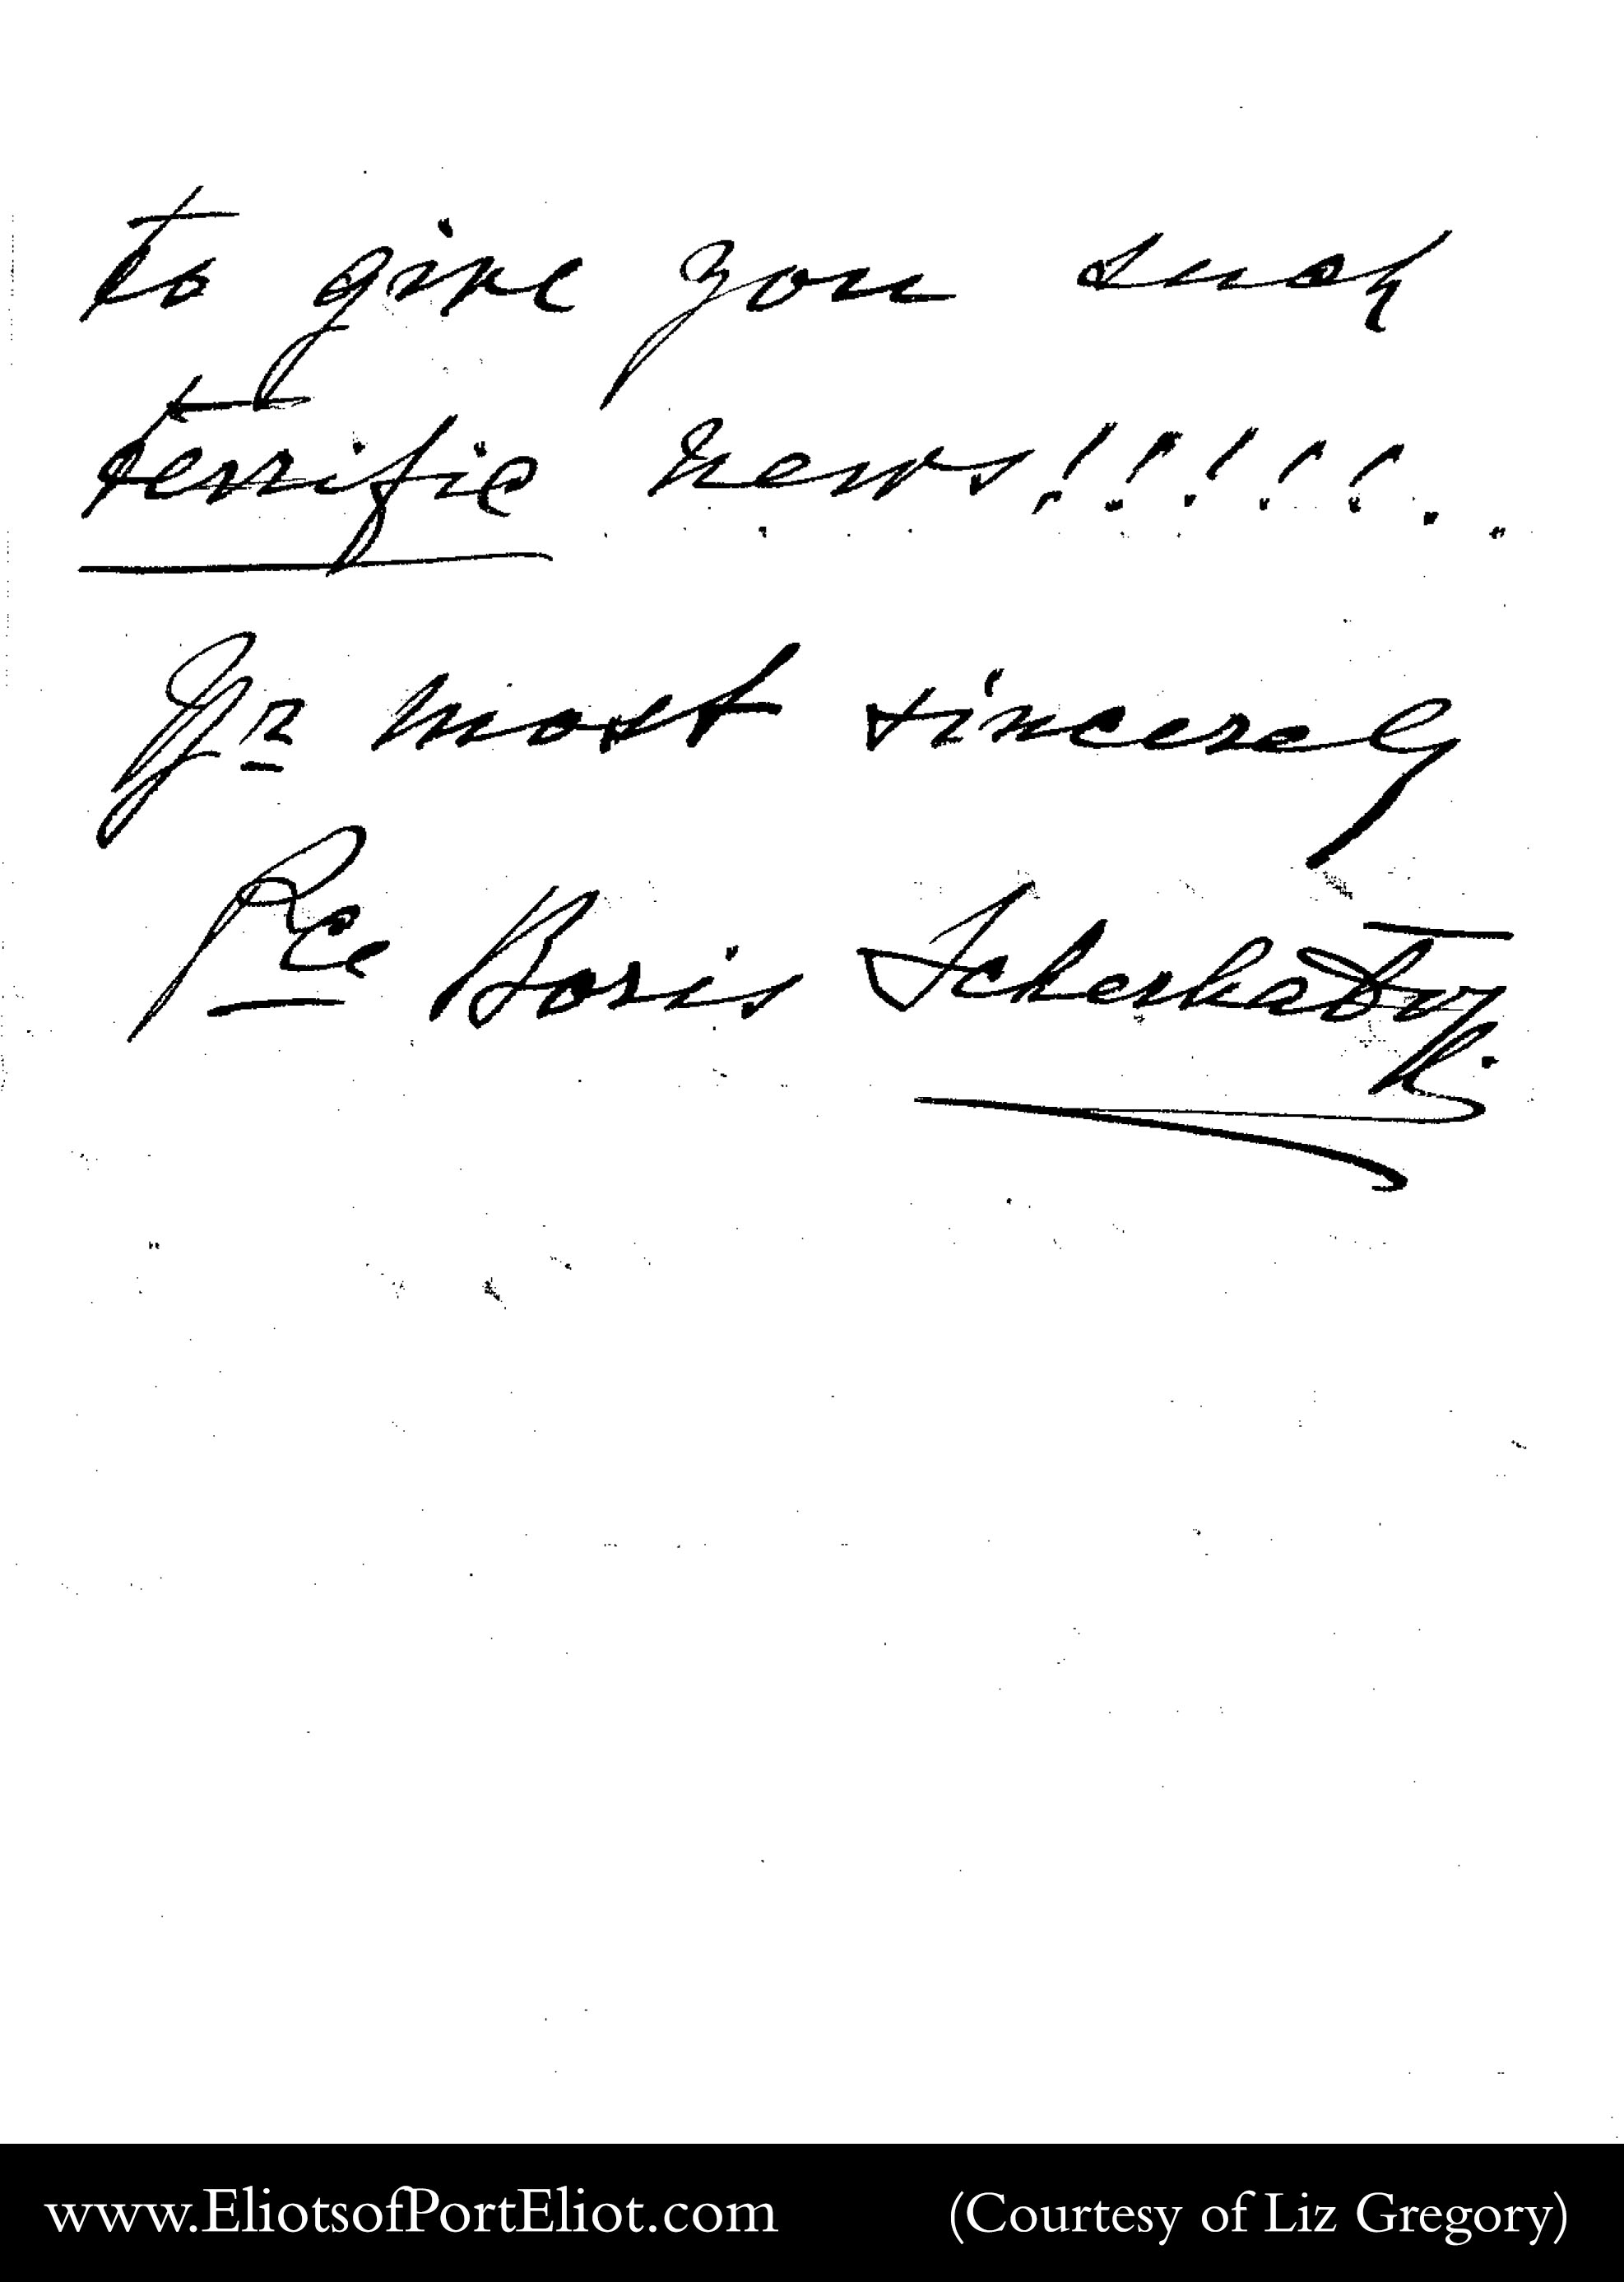 to give you such
terrific news!!!!!..
Yr most sincerely
Pce Boris Scherbatov
www.EliotsofPortEliot.com (Courtesy of Liz Gregory)